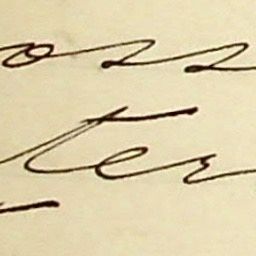 oss
ter